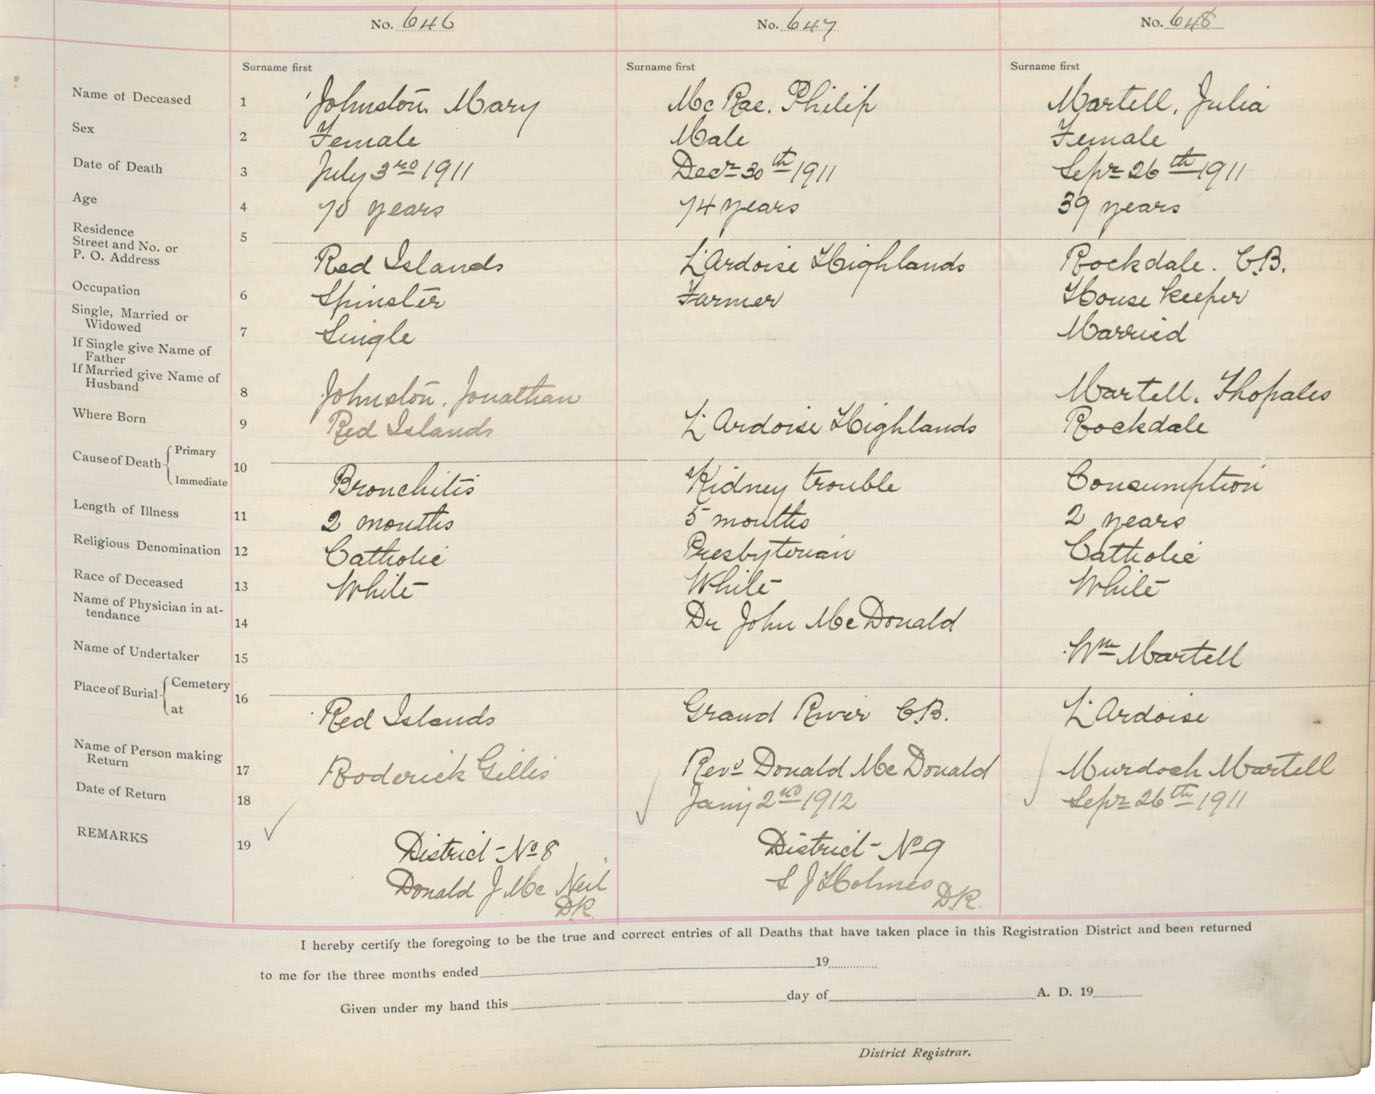 No. 646 No. 647 No. 648
Surname first Surname first Surname first
Name of Deceased 1 Johnston, Mary Mc Rae. Philip Martell, Julia
Sex 2 Female Male Female
Date of Death 3 July 3rd 1911 Decr 30th 1911 Sepr 26th 1911
Age 4 70 years 74 years 39 years
Residence
Street and No. or 5
P. O. Address Red Islands L'Ardoise Highlands Rockdale. C.B.
Occupation 6 Spinster Farmer House Keeper
Single, Married or
Widowed 7 Single Married
If Single give Name of
Father
If Married give Name of
Husband 8 Johnston, Jonathan Martell, Thopales
Where Born 9 Red Islands L'Ardoise Highlands Rockdale
Cause of Death Primary 10
Immediate Bronchitis Kidney trouble Consumption
Length of Illness 11 2 months 5 months 2 years
Religious Denomination 12 Catholic Presbyterian Catholic
Race of Deceased 13 White White White
Name of Physician in at-
tendance 14 Dr John McDonald
Name of Undertaker 15 Wm Martell
Place of Burial Cemetery 16
at Red Islands Grand River C.B. L'Ardoise
Name of Person making
Return 17 Roderick Gillis Revd Donald McDonald Murdoch Martell
Date of Return 18 Jany 2nd 1912 Sepr 26th 1911
REMARKS 19 District No 8 District No 9
Donald J Mc Neil S J Holmes
D.R. D.R.
I hereby certify the foregoing to be the true and correct entries of all Deaths that have taken place in this Registration District and been returned
to me for the three months ended 19
Given under my hand this day of A. D. 19
District Registrar.